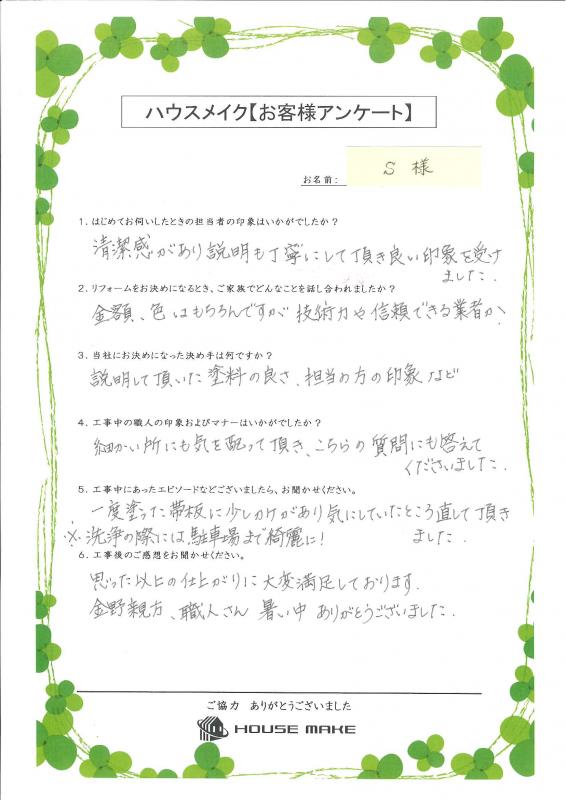 ハウスメイク【お客様アンケート】
お名前: S 様
1. はじめてお伺いしたときの担当者の印象はいかがでしたか？
清潔感があり説明も丁寧にして頂き良い印象を受け
ました.
2. リフォームをお決めになるとき、ご家族でどんなことを話し合われましたか？
金額、色はもちろんですが技術力や信頼できる業者か、
3. 当社にお決めになった決め手は何ですか？
説明して頂いた塗料の良さ、担当の方の印象など
4. 工事中の職人の印象およびマナーはいかがでしたか？
細かい所にも気を配って頂き、こちらの質問にも答えて
くださいました.
5. 工事中にあったエピソードなどございましたら、お聞かせください。
一度塗った帯板に少しかけがあり気にしていたところ直して頂き
ました.
※洗浄の際には駐車場まで綺麗に!
6. 工事後のご感想をお聞かせください。
思った以上の仕上がりに大変満足しております.
金野親方、職人さん 暑い中 ありがとうございました.
ご協力 ありがとうございました
HOUSE MAKE